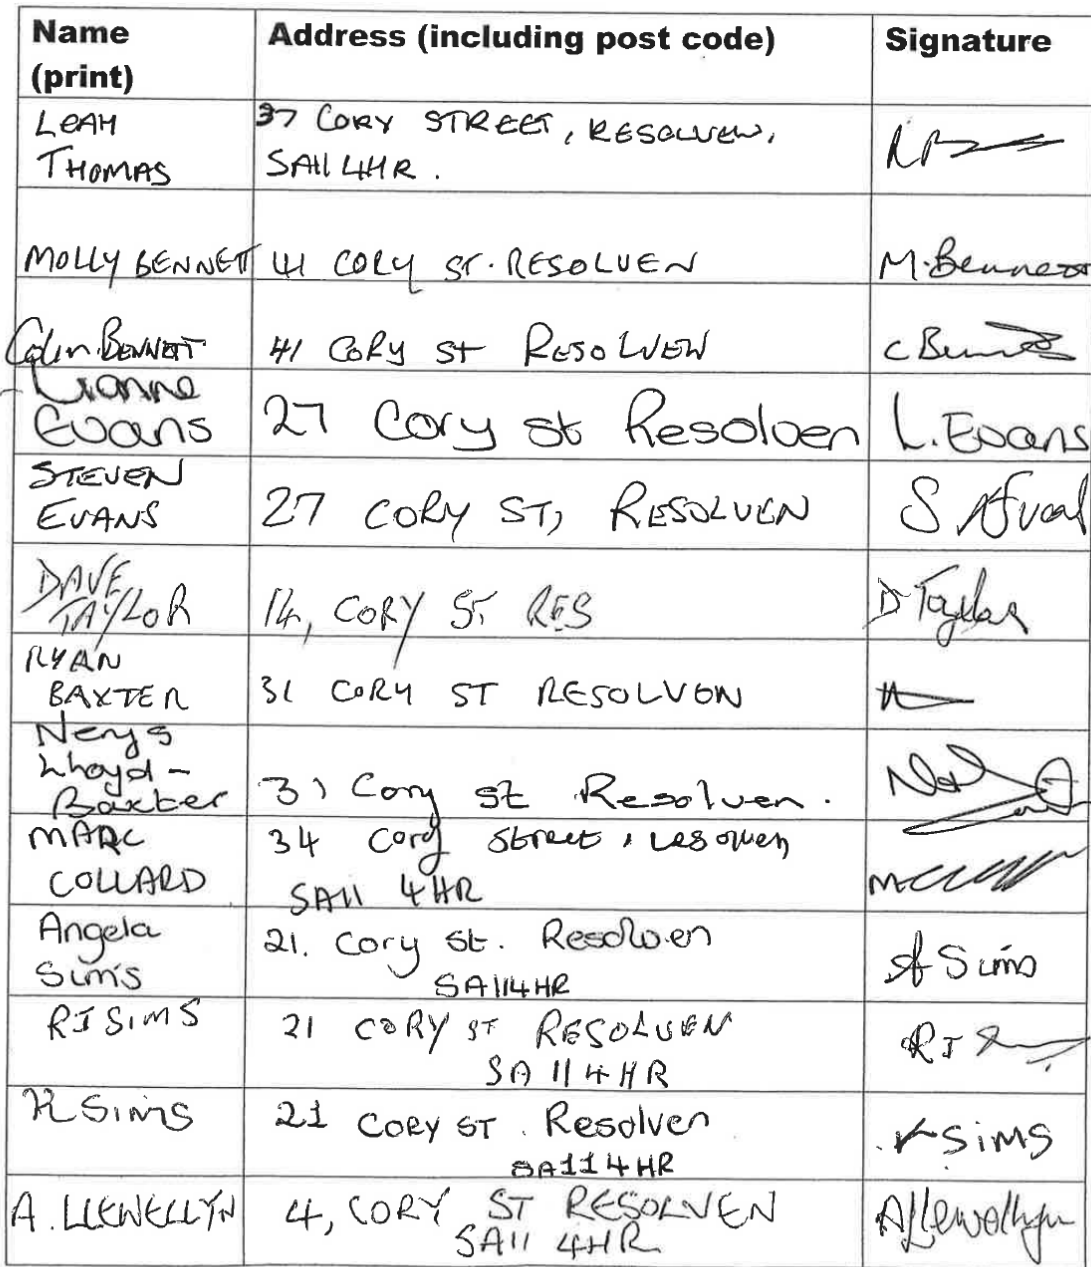 Name Address (including post code) Signature
(print)
LEAH 37 CORY STREET, RESOLVEN,
THOMAS SA11 4HR.
MOLLY BENNETT 41 CORY ST. RESOLVEN M. Bennett
Colin BENNETT 41 CORY St RESOLVEN C Bennett
Lianne
Evans 27 Cory st Resolven L. Evans
STEVEN
EVANS 27 CORY ST, RESOLVEN
DAVE
TAYLOR 14, CORY ST RES D Taylor
RYAN
BAXTER 31 CORY ST RESOLVEN
Nerys
Lhoyd-
Baxter 31 Cory st Resolven.
MARC 34 Cory Street, Resolven
COLLARD SA11 4HR
Angela 21. Cory St. Resolven
Sims SA114HR A Sims
RJ SIMS 21 CORY ST RESOLVEN RJ
SA11 4HR
K SIMS 21 CORY ST. Resolven K SIMS
SA11 4HR
A. LLEWELLYN 4, CORY ST RESOLVEN A Llewellyn
SA11 4HR